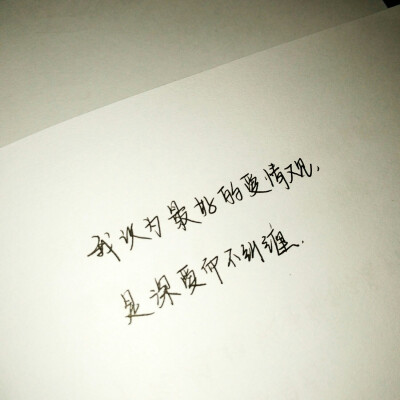 我以为最好的爱情观,
是深爱而不纠缠.